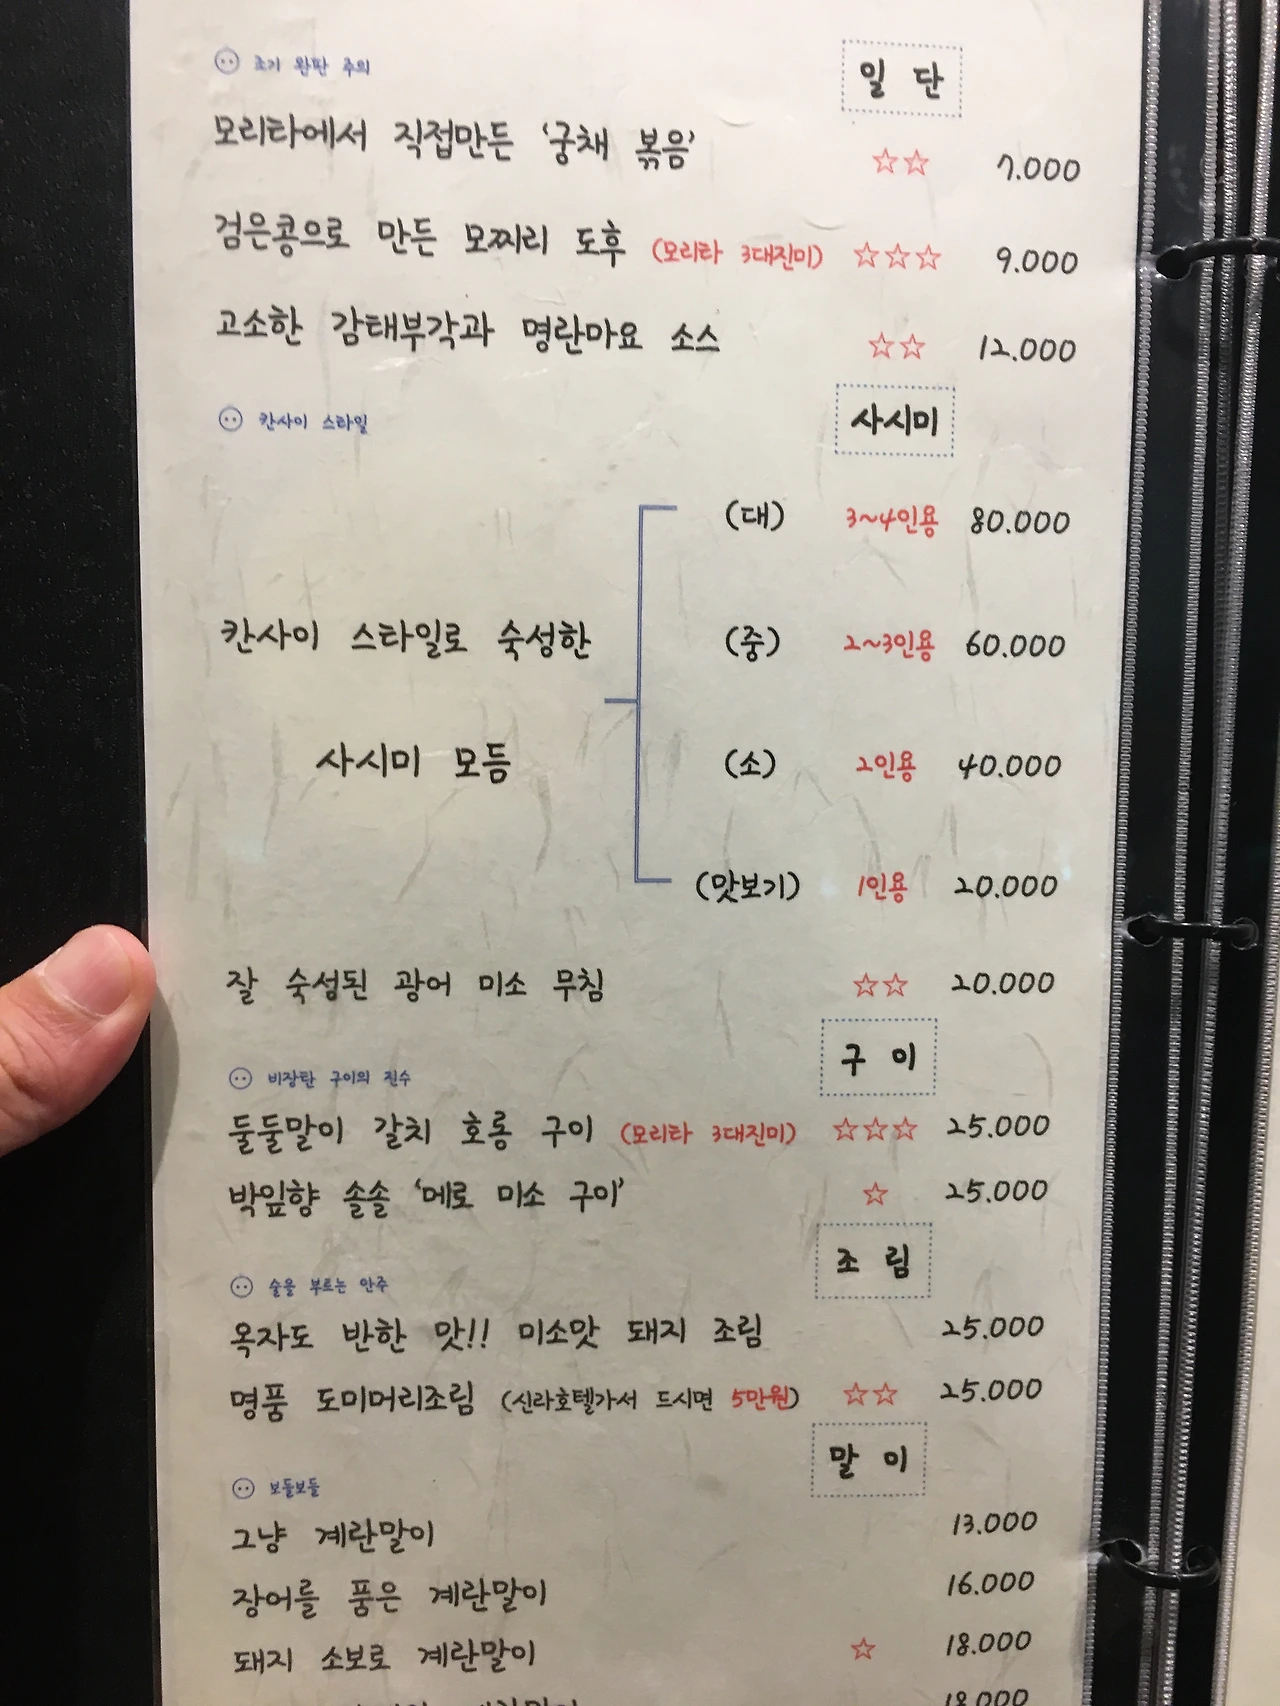 조기 완판 주의
일 단
모리타에서 직접만든 '궁채 볶음' ☆☆ 7.000
검은콩으로 만든 모찌리 도후 (모리타 3대진미) ☆☆☆ 9.000
고소한 감태부각과 명란마요 소스 ☆☆ 12.000
칸사이 스타일
사시미
(대) 3~4인용 80.000
칸사이 스타일로 숙성한 (중) 2~3인용 60.000
사시미 모듬 (소) 2인용 40.000
(맛보기) 1인용 20.000
잘 숙성된 광어 미소 무침 ☆☆ 20.000
구 이
비장탄 구이의 진수
둘둘말이 갈치 호롱 구이 (모리타 3대진미) ☆☆☆ 25.000
박잎향 솔솔 '메로 미소 구이' ☆ 25.000
조 림
술을 부르는 안주
옥자도 반한 맛!! 미소맛 돼지 조림 25.000
명품 도미머리조림 (신라호텔가서 드시면 5만원) ☆☆ 25.000
말 이
보들보들
그냥 계란말이 13.000
장어를 품은 계란말이 16.000
돼지 소보로 계란말이 ☆ 18.000
계란말이 18.000